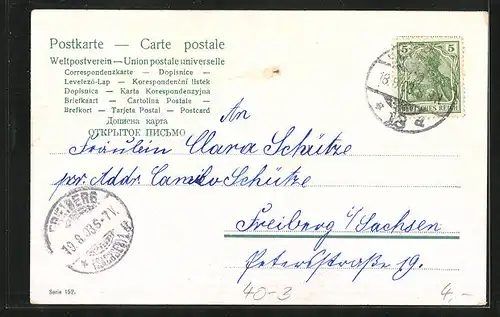 Postkarte — Carte postale
Weltpostverein — Union postale universelle
Correspondenzkarte — Dopisnice —
Levelező-Lap — Korespondenční listek
Dopisnica — Karta Korespondencyjna
Briefkaart — Cartolina Postale —
Brefkort — Tarjeta Postal — Postcard
Дописна карта
ОТКРЫТОЕ ПИСЬМО
5 5
DEUTSCHES REICH
An
Fräulein Clara Schütze
per Addr Camillo Schütze
FREIBERG
19.8.03.6-7V.
(SACHSEN)
Freiberg i/Sachsen
Petersstraße 19.
Serie 152.
40-3
4,-